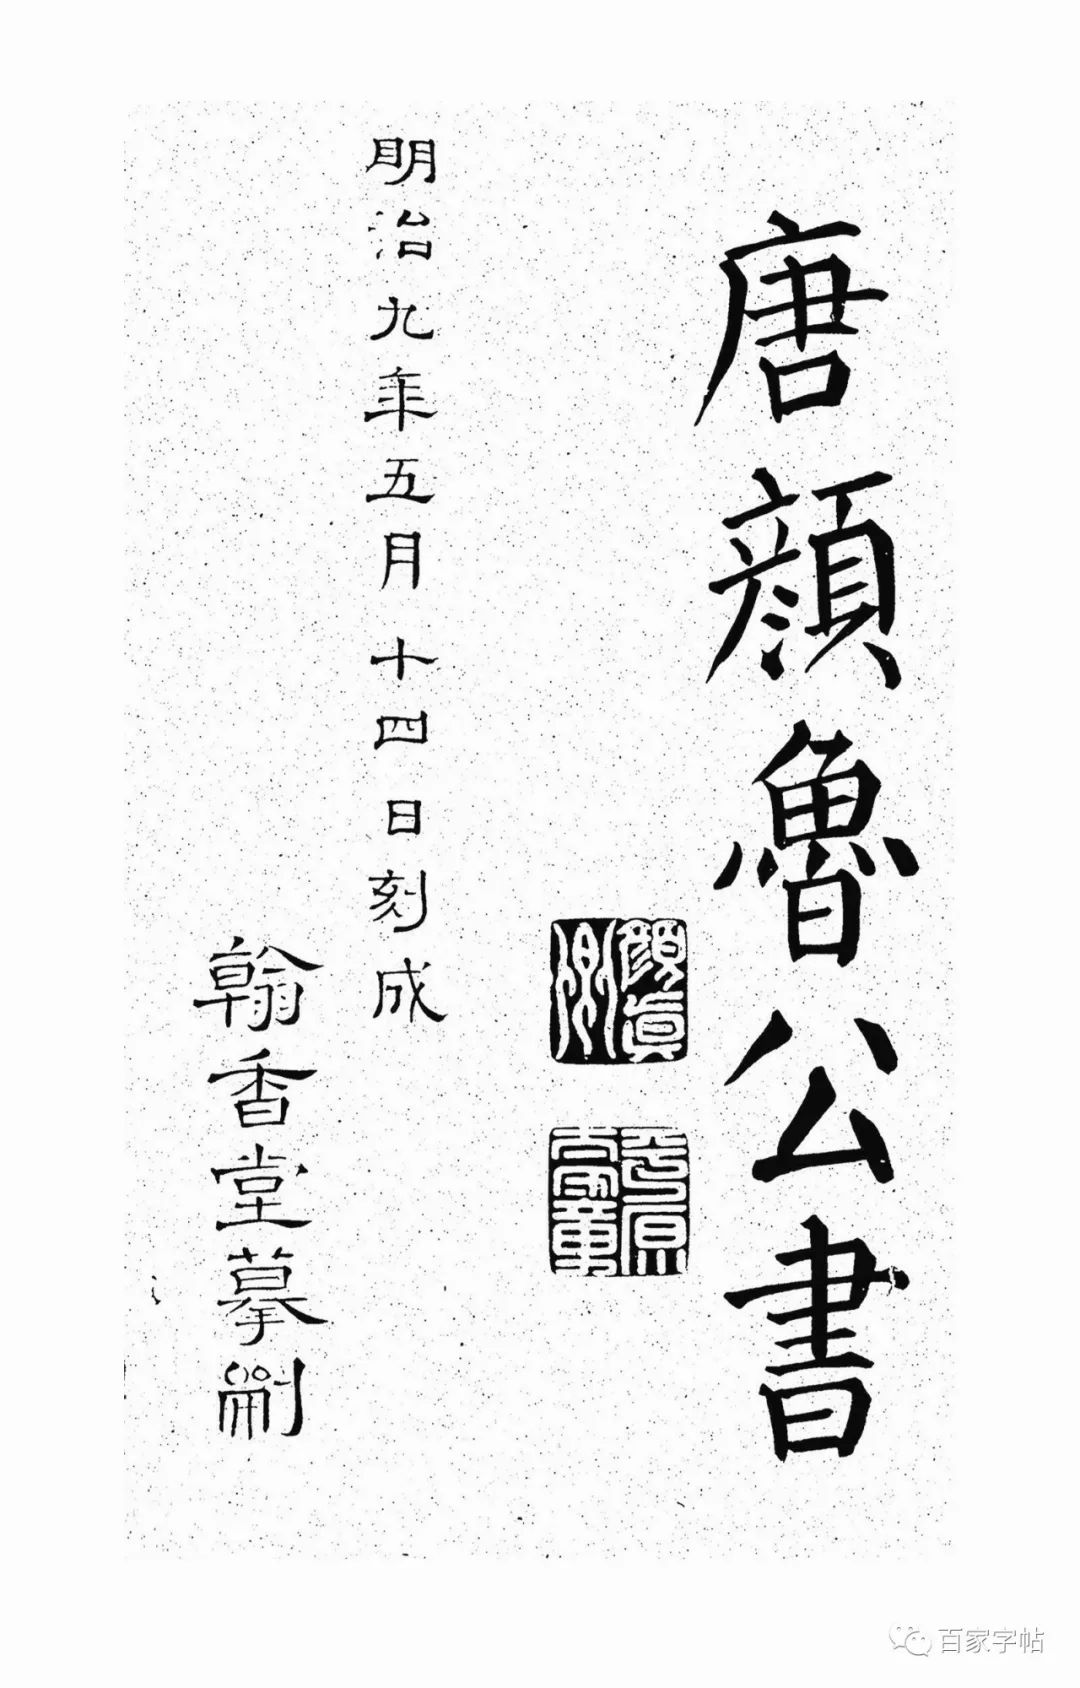 唐顔魯公書
顔眞卿
明治九年五月十四日刻成
翰香堂摹
百家字帖